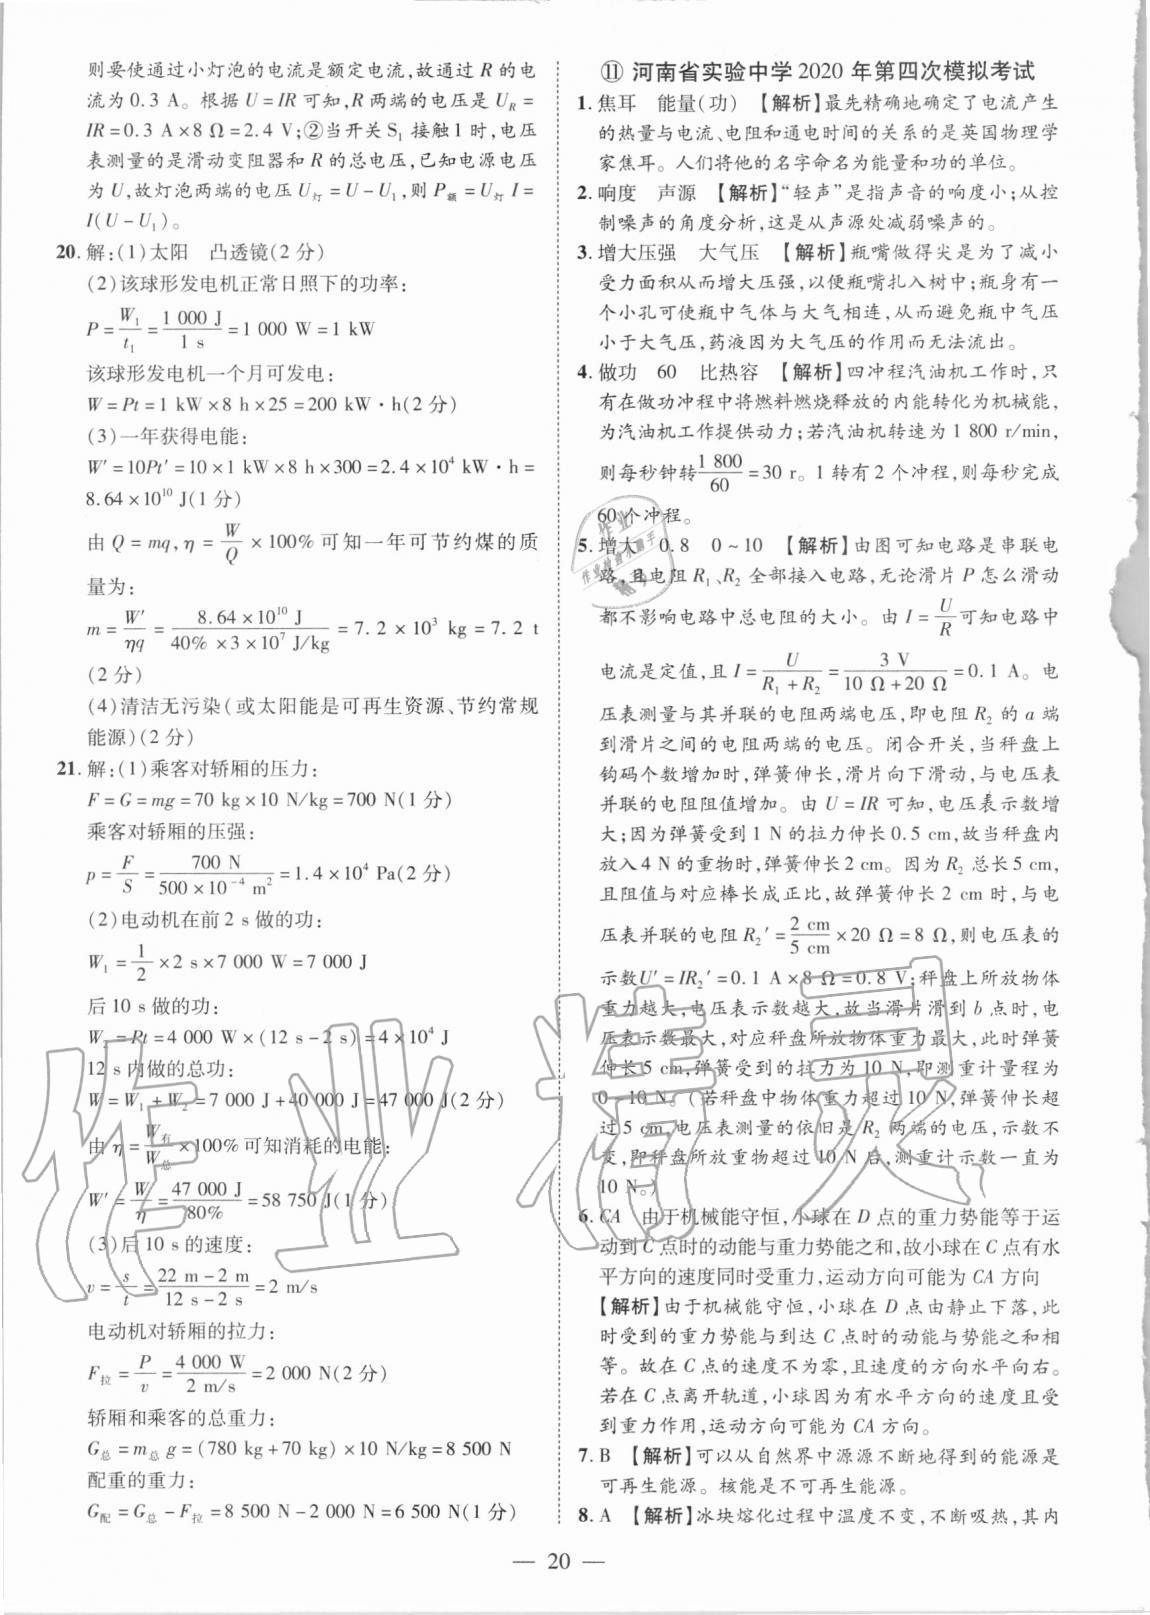 则要使通过小灯泡的电流是额定电流,故通过 R 的电
流为0.3 A。根据 U=IR 可知,R 两端的电压是 U_R=
IR=0.3 A×8 Ω=2.4 V;②当开关S₁接触1时,电压
表测量的是滑动变阻器和 R 的总电压,已知电源电压
为 U,故灯泡两端的电压U灯=U-U₁,则 P额=U灯 I=
I(U-U₁)。
20. 解:(1)太阳 凸透镜(2分)
(2)该球形发电机正常日照下的功率:
P=W₁/t₁=1 000 J/1 s=1 000 W=1 kW
该球形发电机一个月可发电:
W=Pt=1 kW×8 h×25=200 kW·h(2分)
(3)一年获得电能:
W′=10Pt′=10×1 kW×8 h×300=2.4×10⁴ kW·h=
8.64×10¹⁰ J(1分)
由 Q=mq,η=W/Q×100%可知一年可节约煤的质
量为:
m=W′/ηq=8.64×10¹⁰ J/40%×3×10⁷ J/kg=7.2×10³ kg=7.2 t
(2分)
(4)清洁无污染(或太阳能是可再生资源、节约常规
能源)(2分)
21. 解:(1)乘客对轿厢的压力:
F=G=mg=70 kg×10 N/kg=700 N(1分)
乘客对轿厢的压强:
p=F/S=700 N/500×10⁻⁴ m²=1.4×10⁴ Pa(2分)
(2)电动机在前2 s做的功:
W₁=1/2×2 s×7 000 W=7 000 J
后10 s做的功:
W₂=Pt=4 000 W×(12 s-2 s)=4×10⁴ J
12 s内做的总功:
W=W₁+W₂=7 000 J+40 000 J=47 000 J(2分)
由η=W有/W总×100%可知消耗的电能:
W′=W/η=47 000 J/80%=58 750 J(1分)
(3)后10 s的速度:
v=s/t=22 m-2 m/12 s-2 s=2 m/s
电动机对轿厢的拉力:
F拉=P/v=4 000 W/2 m/s=2 000 N(2分)
轿厢和乘客的总重力:
G总=m总g=(780 kg+70 kg)×10 N/kg=8 500 N
配重的重力:
G配=G总-F拉=8 500 N-2 000 N=6 500 N(2分)
⑪ 河南省实验中学2020年第四次模拟考试
1. 焦耳 能量(功) 【解析】最先精确地确定了电流产生
的热量与电流、电阻和通电时间的关系的是英国物理学
家焦耳。人们将他的名字命名为能量和功的单位。
2. 响度 声源 【解析】“轻声”是指声音的响度小;从控
制噪声的角度分析,这是从声源处减弱噪声的。
3. 增大压强 大气压 【解析】瓶嘴做得尖是为了减小
受力面积从而增大压强,以便瓶嘴扎入树中;瓶身有一
个小孔可使瓶中气体与大气相连,从而避免瓶中气压
小于大气压,药液因为大气压的作用而无法流出。
4. 做功 60 比热容 【解析】四冲程汽油机工作时,只
有在做功冲程中将燃料燃烧释放的内能转化为机械能,
为汽油机工作提供动力;若汽油机转速为1 800 r/min,
则每秒钟转1 800/60=30 r。1转有2个冲程,则每秒完成
60个冲程。
5. 增大 0.8 0~10 【解析】由图可知电路是串联电
路,且电阻R₁、R₂全部接入电路,无论滑片P怎么滑动
都不影响电路中总电阻的大小。由 I=U/R可知电路中
电流是定值,且I=U/R₁+R₂=3 V/10 Ω+20 Ω=0.1 A。电
压表测量与其并联的电阻两端电压,即电阻R₂的a端
到滑片之间的电阻两端的电压。闭合开关,当秤盘上
钩码个数增加时,弹簧伸长,滑片向下滑动,与电压表
并联的电阻阻值增加。由U=IR可知,电压表示数增
大;因为弹簧受到1 N的拉力伸长0.5 cm,故当秤盘内
放入4 N的重物时,弹簧伸长2 cm。因为R₂总长5 cm,
且阻值与对应棒长成正比,故弹簧伸长2 cm时,与电
压表并联的电阻R₂′=2 cm/5 cm×20 Ω=8 Ω,则电压表的
示数U′=IR₂′=0.1 A×8 Ω=0.8 V;秤盘上所放物体
重力越大,电压表示数越大,故当滑片滑到b点时,电
压表示数最大,对应秤盘所放物体重力最大,此时弹簧
伸长5 cm,弹簧受到的拉力为10 N,即测重计量程为
0~10 N。(若秤盘中物体重力超过10 N,弹簧伸长超
过5 cm,电压表测量的依旧是R₂两端的电压,示数不
变,即秤盘所放重物超过10 N后,测重计示数一直为
10 N。)
6. CA 由于机械能守恒,小球在D点的重力势能等于运
动到C点时的动能与重力势能之和,故小球在C点有水
平方向的速度同时受重力,运动方向可能为CA方向
【解析】由于机械能守恒,小球在D点由静止下落,此
时受到的重力势能与到达C点时的动能与势能之和相
等。故在C点的速度不为零,且速度的方向水平向右。
若在C点离开轨道,小球因为有水平方向的速度且受
到重力作用,运动方向可能为CA方向。
7. B 【解析】可以从自然界中源源不断地得到的能源是
可再生能源。核能是不可再生能源。
8. A 【解析】冰块熔化过程中温度不变,不断吸热,其内
— 20 —
作业精灵